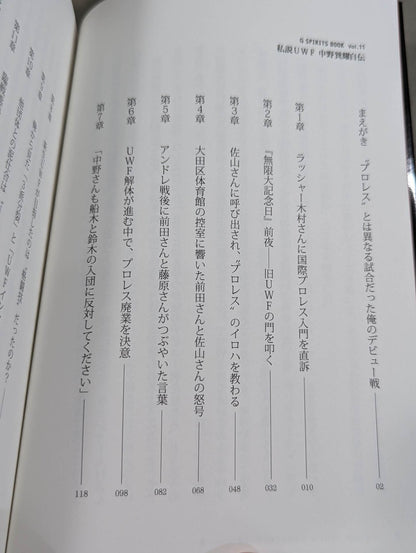 G SPIRITS BOOK vol.11
私説UWF 中野巽耀自伝
まえがき “プロレス”とは異なる試合だった俺のデビュー戦 02
第1章 ラッシャー木村さんに国際プロレス入門を直訴 010
第2章 『無限大記念日』前夜——旧UWFの門を叩く 032
第3章 佐山さんに呼び出され、“プロレス”のイロハを教わる 048
第4章 大田区体育館の控室に響いた前田さんと佐山さんの怒号 068
第5章 アンドレ戦後に前田さんと藤原さんがつぶやいた言葉 082
第6章 UWF解体が進む中で、プロレス廃業を決意 098
第7章 「中野さんも船木と鈴木の入団に反対してください」 118